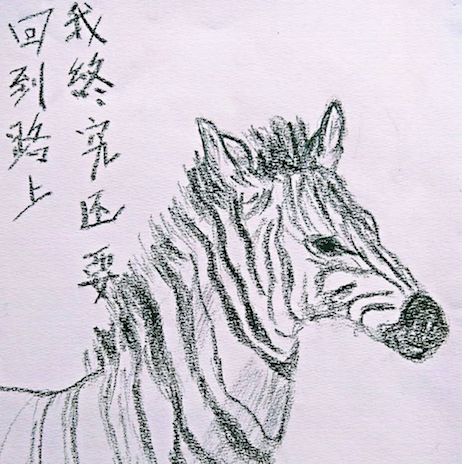 我终究还要
回到路上